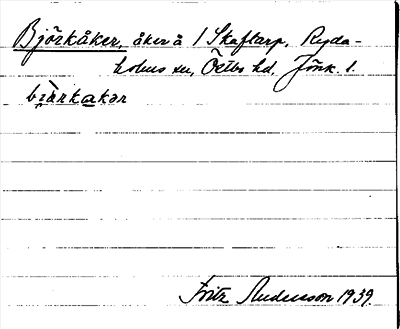 Björkåker, åker å 1 Skaftarp, Ryda-
holms sn, Östbo hd, Jönk. l.
bjàrkakər
Fritz Andersson 1939.